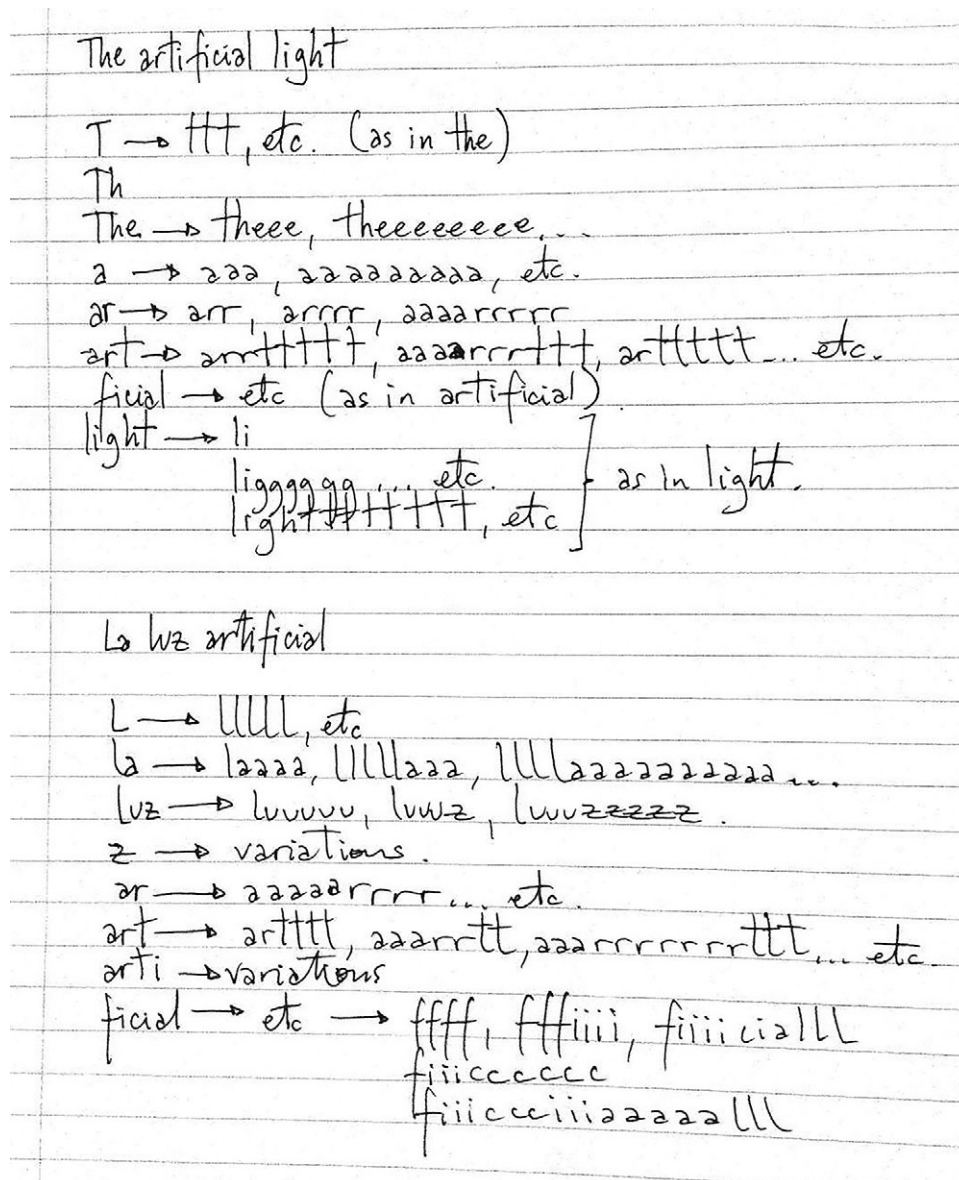 The artificial light
T → ttt, etc. (as in the)
Th
The → theee, theeeeeeee...
a → aaa, aaaaaaaaa, etc.
ar → arr, arrrr, aaaarrrrr
art → arrttttt, aaaarrrttt, arttttt... etc.
ficial → etc (as in artificial)
light → li
ligggggg ... etc. as in light.
lightttttttt, etc
La luz artificial
L → lllll, etc
la → laaaa, lllllaaa, llllaaaaaaaaaaa...
luz → luuuuu, luuuz, luuuzzzzz.
z → variations.
ar → aaaaarrrr... etc.
art → artttt, aaarrtt, aaarrrrrrrrttt... etc.
arti → variations
ficial → etc → ffff, fffiiii, fiiiicialll
fiiicccccc
fiiiccciiiaaaaalll